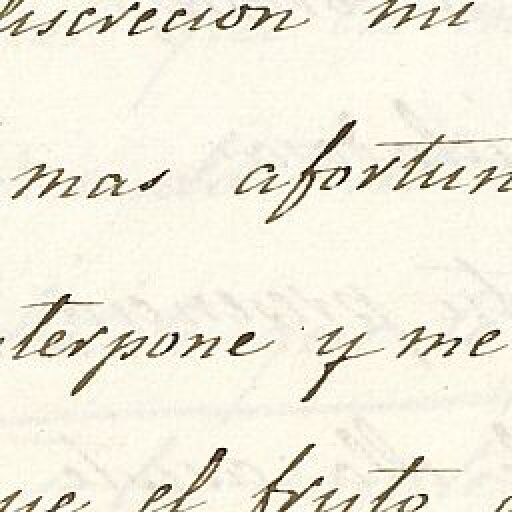 discrecion mi
mas afortun
terpone y me
ue el fruto